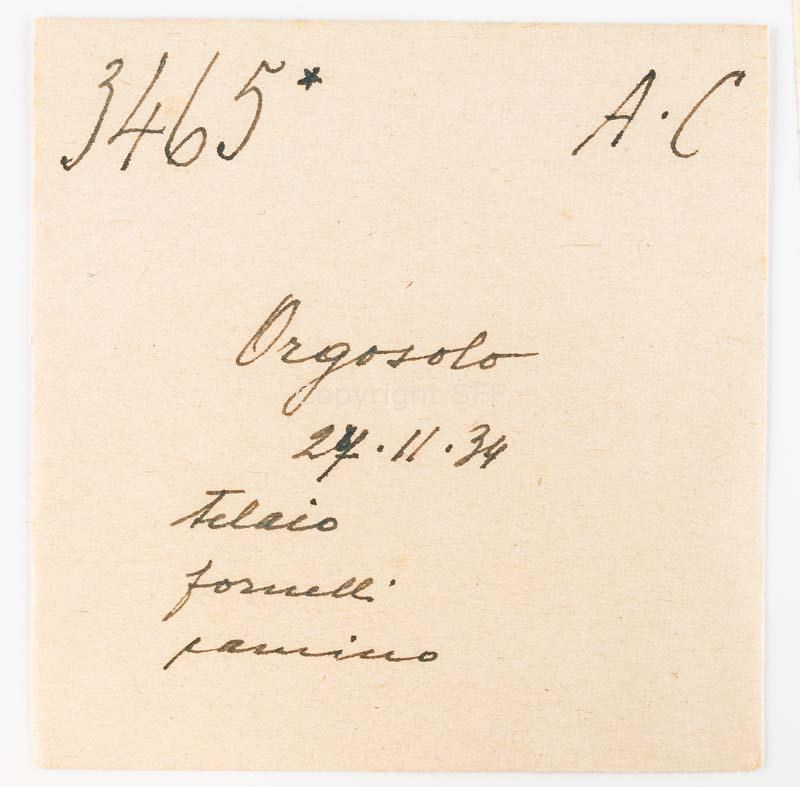 3465* A.C
Orgosolo
Copyright SFF
27.11.34
telaio
fornelli
camino